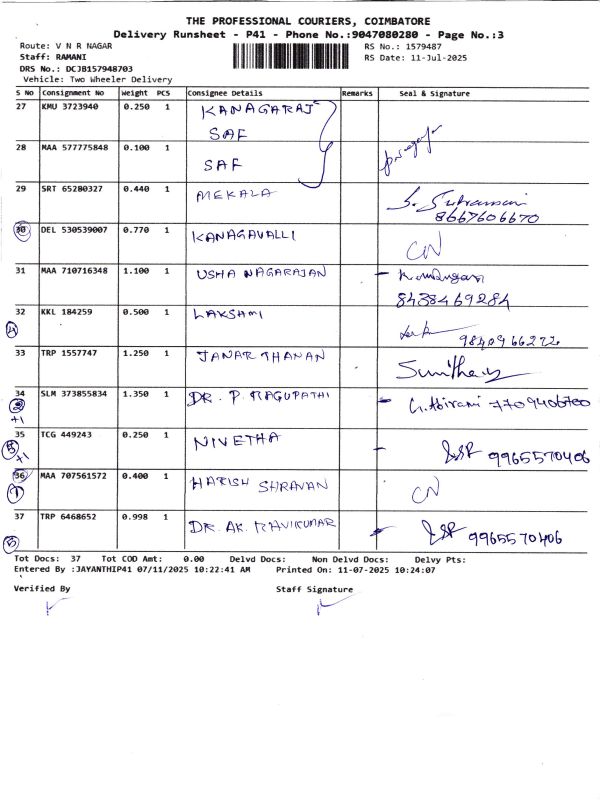 THE PROFESSIONAL COURIERS, COIMBATORE
Delivery Runsheet - P41 - Phone No.:9047080280 - Page No.:3
Route: V N R NAGAR RS No.: 1579487
Staff: RAMANI RS Date: 11-Jul-2025
DRS No.: DCJB157948703
Vehicle: Two Wheeler Delivery
S No Consignment No Weight PCS Consignee Details Remarks Seal & Signature
27 KMU 3723940 0.250 1 KANAGARAJ
SAF
28 MAA 577775848 0.100 1 SAF
29 SRT 65280327 0.440 1 MEKALA
8667606670
30 DEL 530539007 0.770 1 KANAGAVALLI CN
31 MAA 710716348 1.100 1 USHA NAGARAJAN
8438469284
32 KKL 184259 0.500 1 LAKSHMI
4 9840966222
33 TRP 1557747 1.250 1 JANARTHANAN
34 SLM 373855834 1.350 1 DR. P. RAGUPATHI G. Abirami 7709406700
2
+1
35 TCG 449243 0.250 1 NIVETHA
5
+1 9965570406
36 MAA 707561572 0.400 1 HARISH SHRAVAN CN
1
37 TRP 6468652 0.998 1 DR. AK. RAVIKUMAR 9965570406
Tot Docs: 37 Tot COD Amt: 0.00 Delvd Docs: Non Delvd Docs: Delvy Pts:
Entered By :JAYANTHIP41 07/11/2025 10:22:41 AM Printed On: 11-07-2025 10:24:07
Verified By Staff Signature